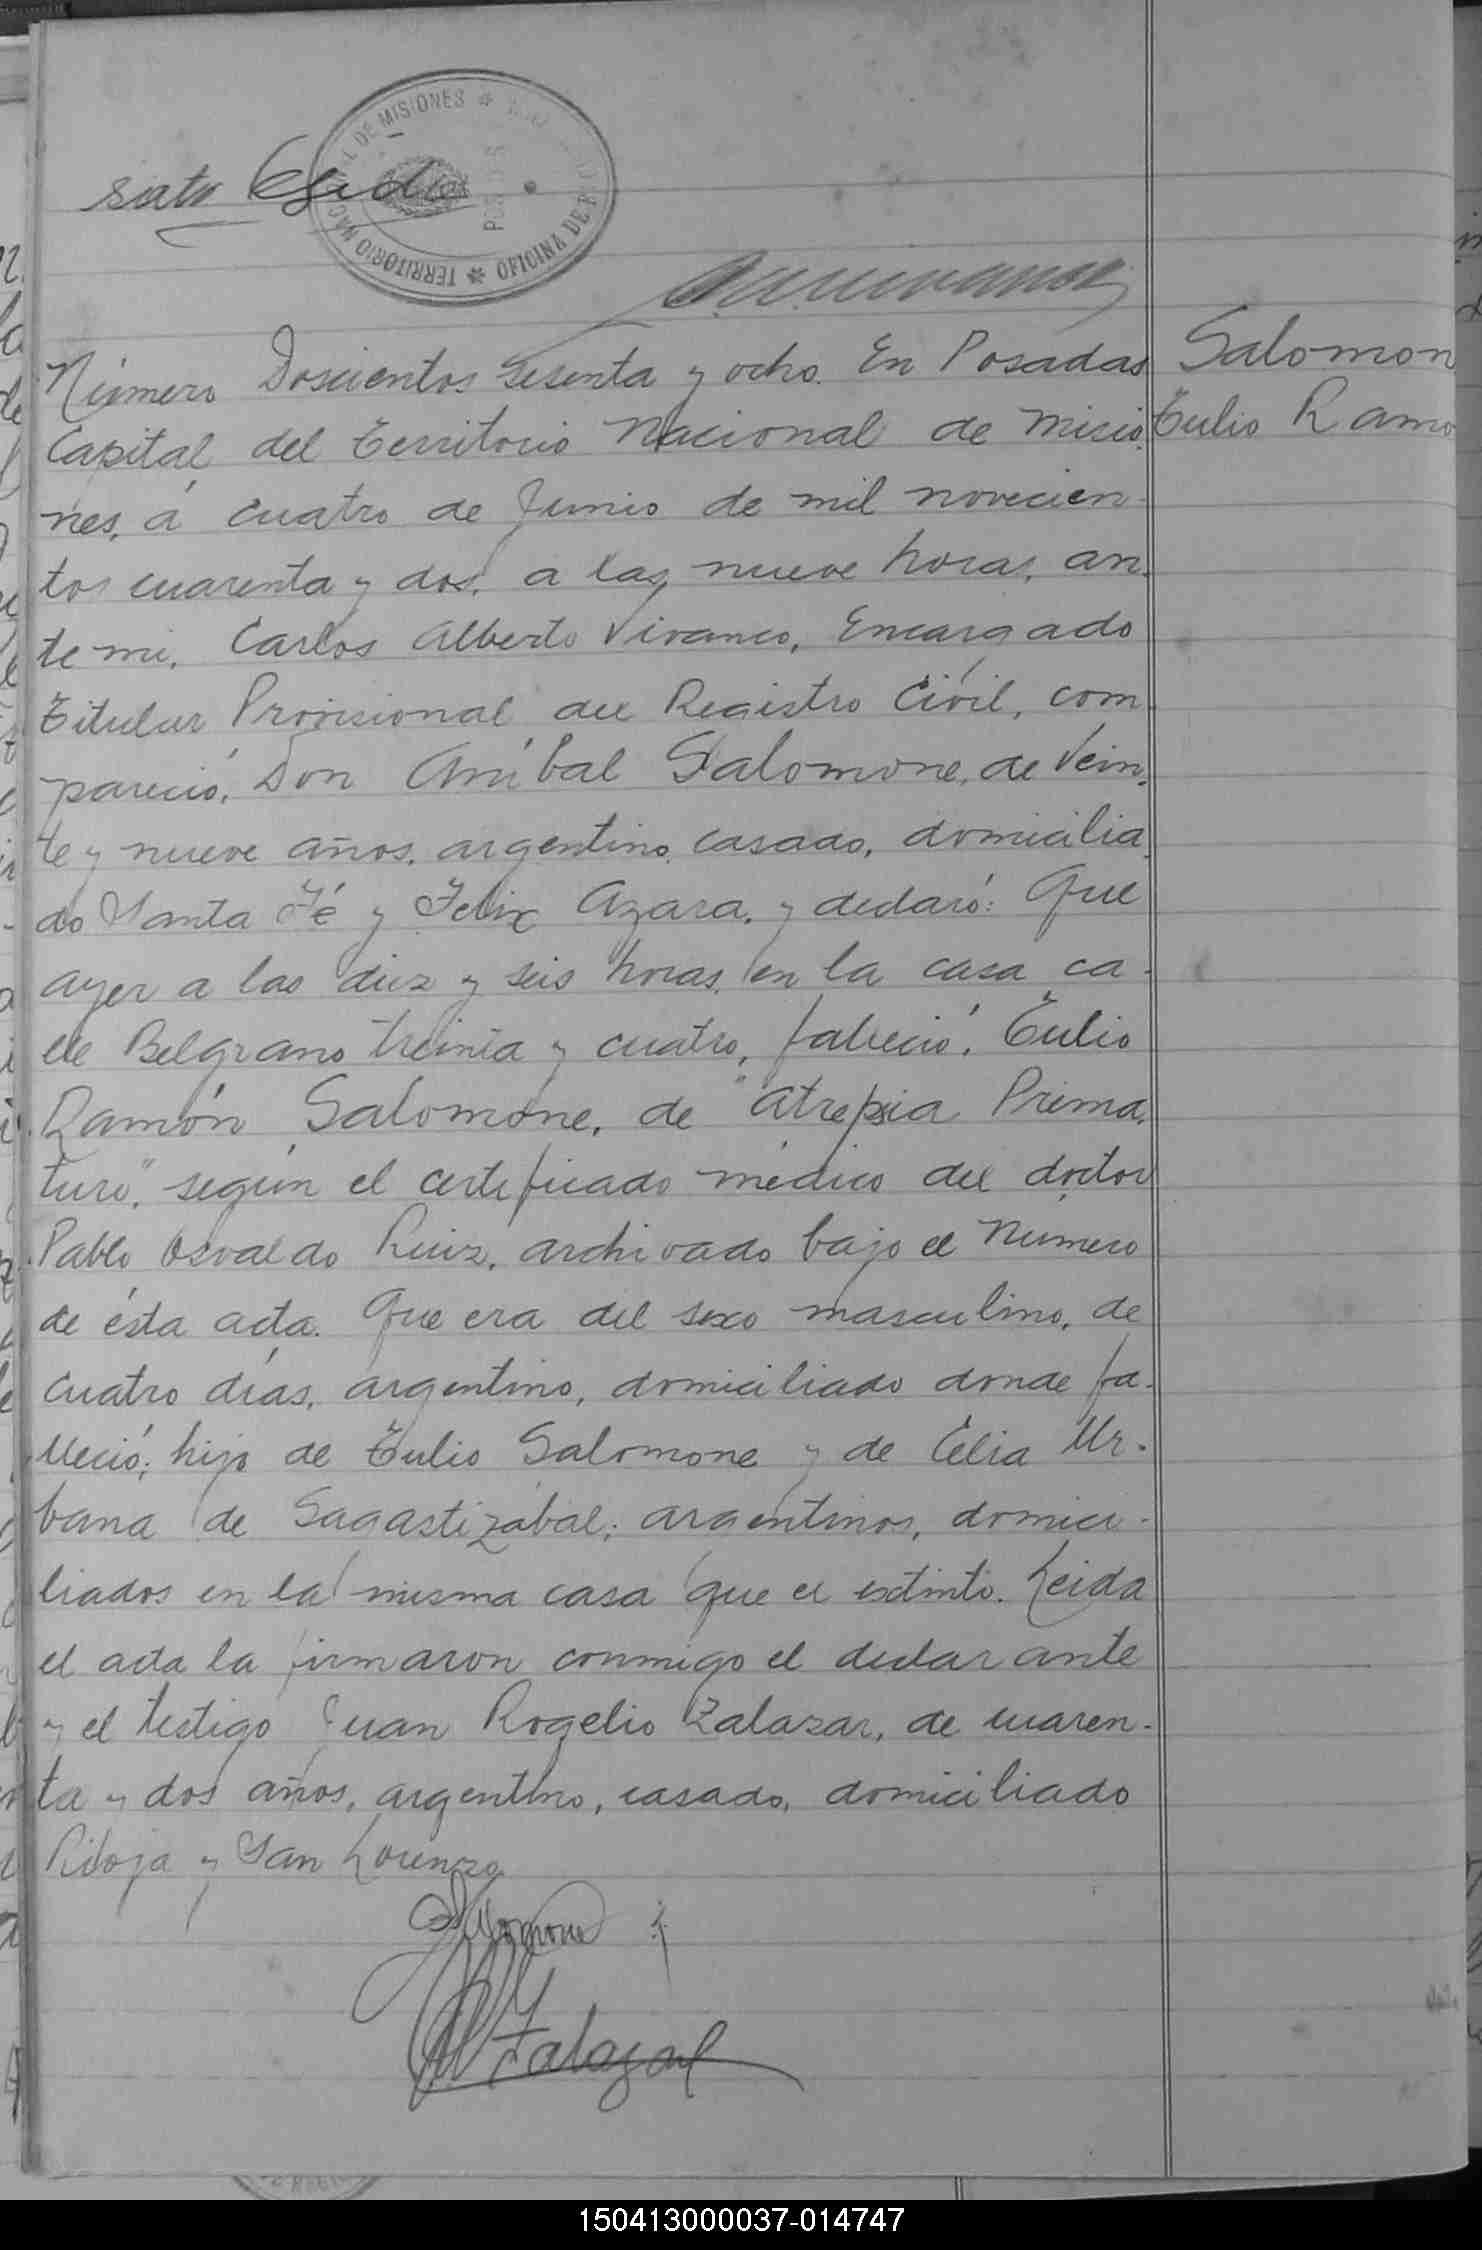 TERRITORIO NACIONAL DE MISIONES
POSADAS
Número Doscientos Sesenta y ocho. En Posadas
Salomon
Capital del Territorio Nacional de Misio-
Tulio Ramo
nes, á cuatro de Junio de mil novecien-
tos cuarenta y dos, a las nueve horas, an-
te mi, Carlos Alberto Vivanco, Encargado
Titular Provisional del Registro Civil, com-
pareció, Don Aníbal Salomone, de Vein-
te y nueve años, argentino, casado, domicilia-
do Santa Fé y Felix Azara, y declaró: Que
ayer a las diez y seis horas, en la casa ca-
lle Belgrano treinta y cuatro, falleció, Tulio
Ramón Salomone, de "atrepsia Prema-
turo", según el certificado médico del doctor
Pablo Osvaldo Ruiz, archivado bajo el Número
de ésta acta. Que era del sexo masculino, de
cuatro días, argentino, domiciliado donde fa-
lleció; hijo de Tulio Salomone y de Celia Ur-
bana de Sagastizábal; argentinos, domici-
liados en la misma casa que el extinto. Leida
el acta la firmaron conmigo el declarante
y el testigo Juan Rogelio Zalazar, de cuaren-
ta y dos años, argentino, casado, domiciliado
Rioja y San Lorenzo
Salomone
Zalazar
150413000037-014747